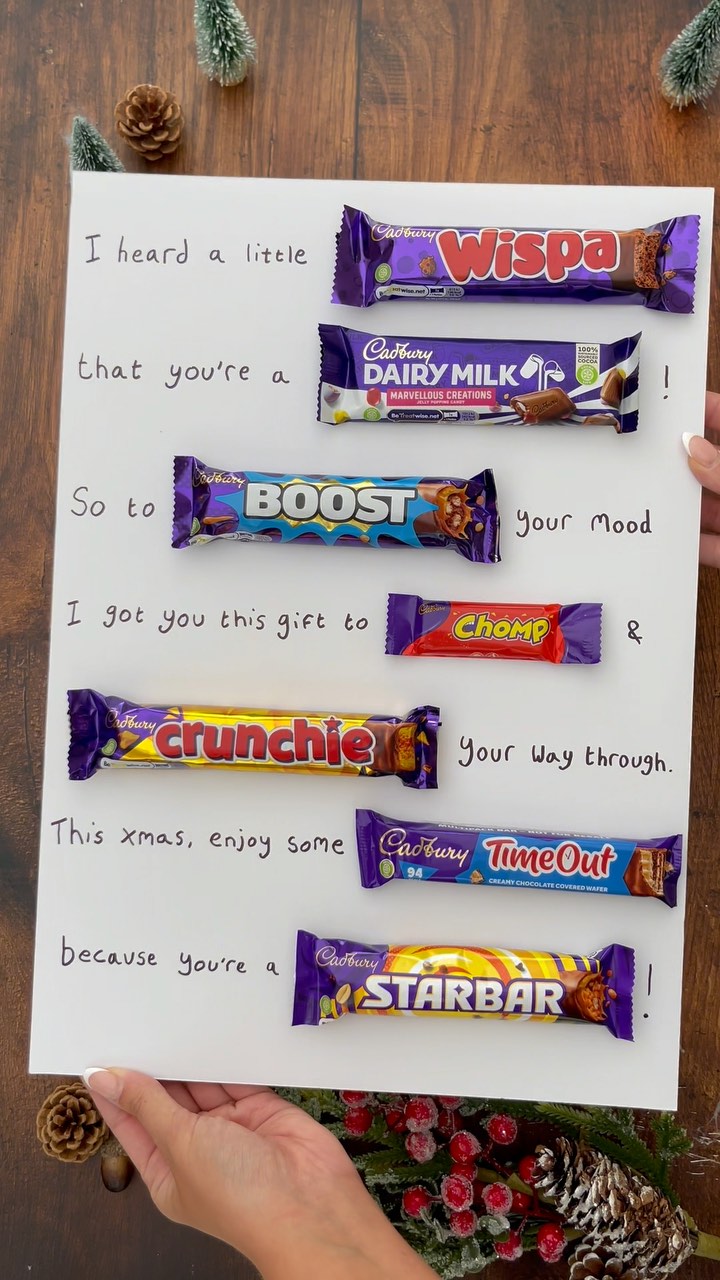 I heard a little Cadbury Wispa
that you're a Cadbury DAIRY MILK !
MARVELLOUS CREATIONS
JELLY POPPING CANDY
100%
COCOA
BeTreatwise.net
So to Cadbury BOOST your mood
I got you this gift to Cadbury Chomp &
Cadbury crunchie your way through.
This xmas, enjoy some Cadbury TimeOut
94
CREAMY CHOCOLATE COVERED WAFER
because you're a Cadbury STARBAR !